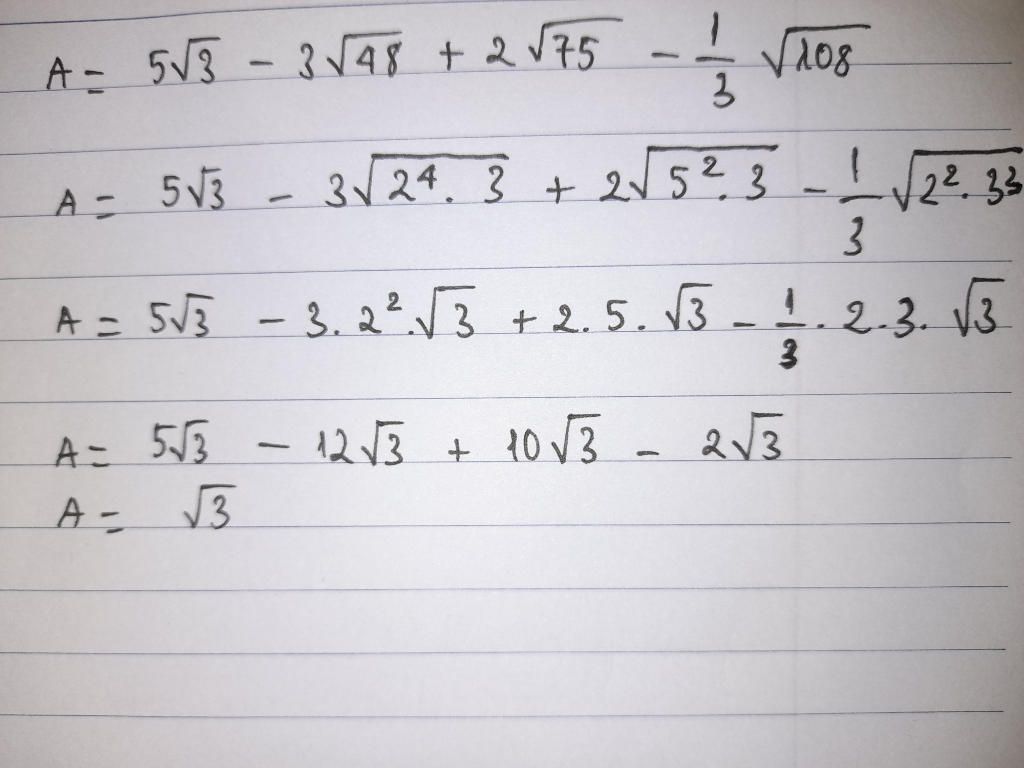 A = 5√3 - 3√48 + 2√75 - 1/3 √108
A = 5√3 - 3√(2⁴ . 3) + 2√(5² . 3) - 1/3 √(2² . 3³)
A = 5√3 - 3. 2² . √3 + 2. 5. √3 - 1/3 . 2. 3. √3
A = 5√3 - 12√3 + 10√3 - 2√3
A = √3